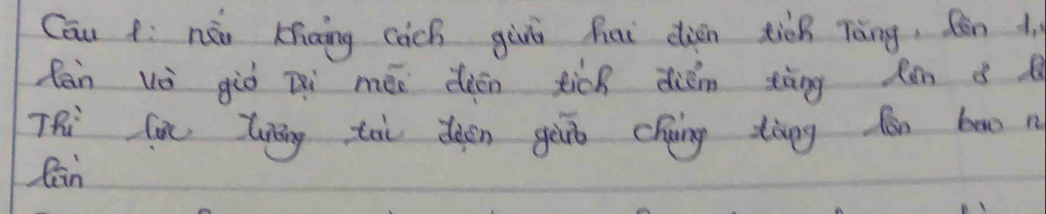 Câu 1: nếu khảng cách giữa hai điện tích Tăng, lên 1,
lần và giá trị mỗi điện tích điểm tăng lên 8 l
Thì lực tương tác điện giữa chúng tăng lên bao n
lần